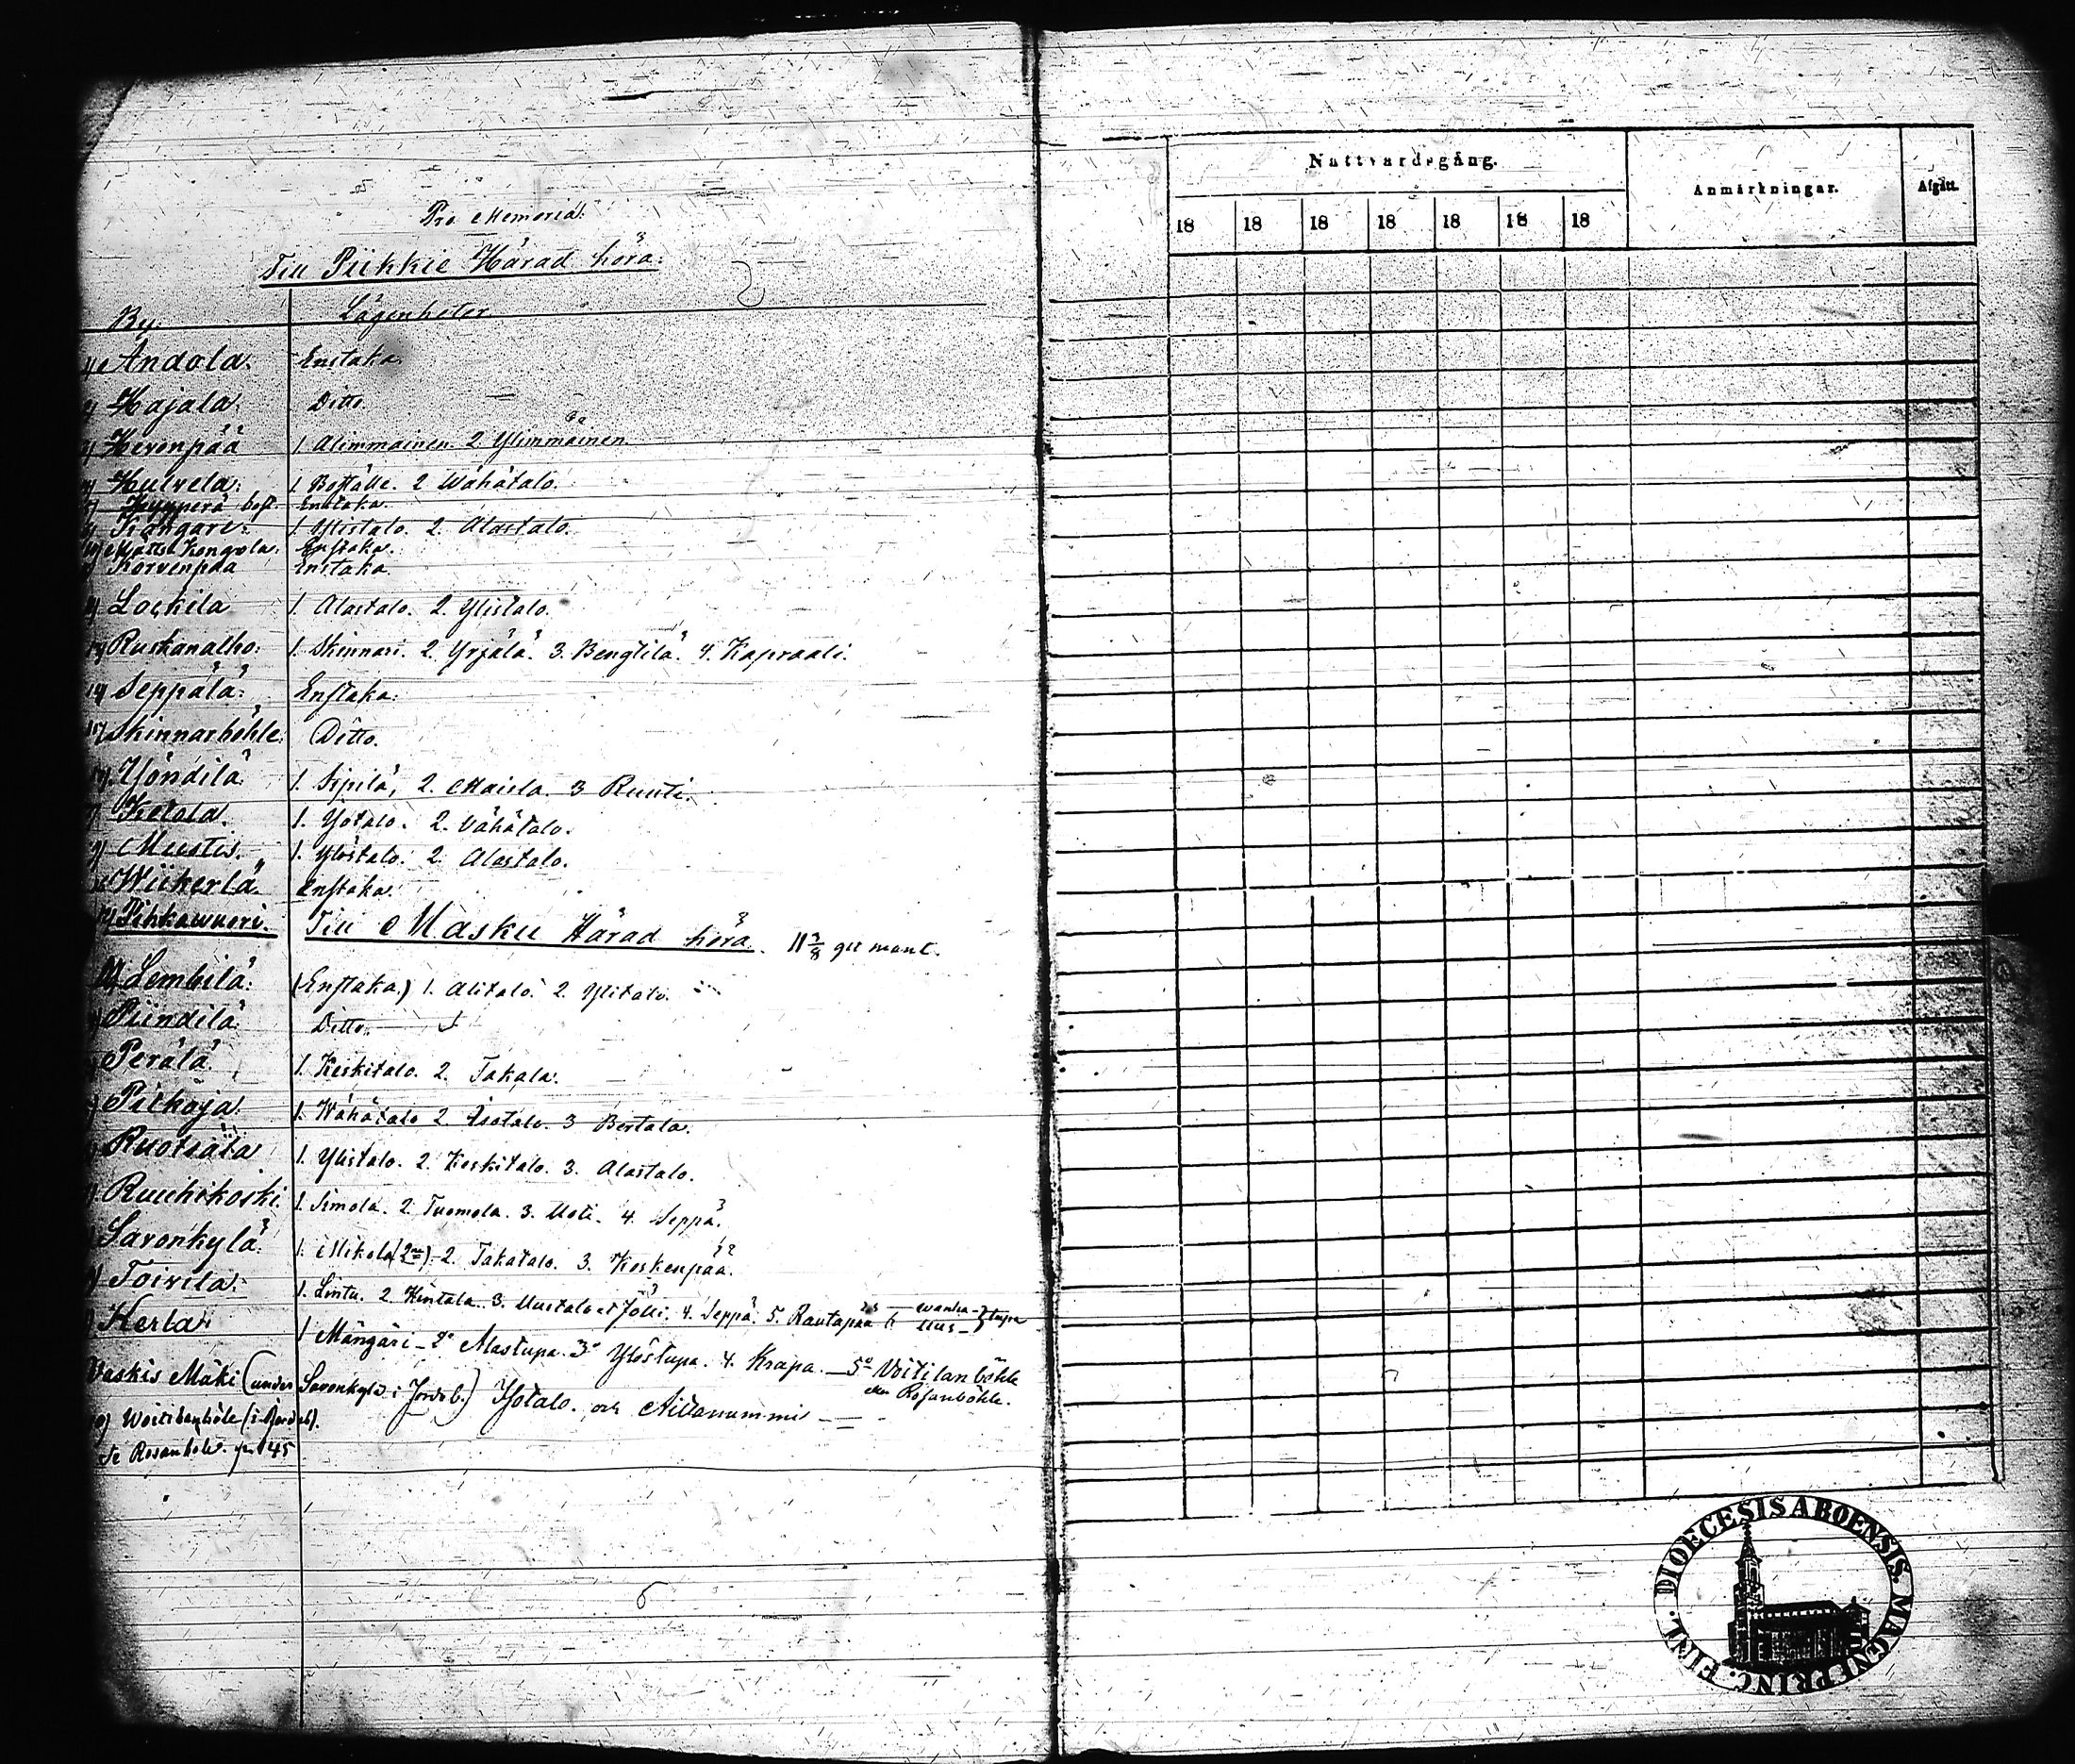 Pro Memoria:
Till Piikkie Härad höra:
By. Lägenheter.
Andola. Enstaka
Hajala. Ditto.
Hevonpää 1. Alimmainen. 2 Ylimmäinen.
Hulvela. 1. Böffälle. 2 Wähätalo.
Hyyperä bost. Enstaka.
Kangare. 1. Ylistalo. 2. Alastalo.
Kongola. Enstaka.
Korvenpää Enstaka.
Lockila 1. Alastalo. 2. Ylistalo.
Ruskanalho. 1. Skinnari. 2. Yrjälä. 3. Bengtilä. 4. Kapraali.
Seppälä. Enstaka.
Skinnarböhle. Ditto.
Yöndilä. 1. Sipilä, 2. Maisla. 3 Ruuti.
Ketola. 1. Yötalo. 2. Vähätalo.
Muestis. 1. Ylöstalo. 2. Alastalo.
Wiikerlä. Enstaka.
Pihkawuori. Till Masku Härad höra. 11 3/8 gll mant.
Lembilä. (Enstaka.) 1. Alitalo. 2. Ylitalo.
Piindilä Ditto.
Perälä 1. Keskitalo. 2. Takala.
Pitkäja 1. Wähätalo 2. Isotalo. 3 Bertala.
Ruotsala 1. Ylistalo. 2. Keskitalo. 3. Alastalo.
Ruuhikoski. 1. Simola. 2. Tuomola. 3. Uoti. 4. Seppä.
Savonkylä. 1. Mikola 2. Takatalo. 3. Koskenpää.
Toivila. 1. Lintu. 2. Hintala. 3. Uustalo et Jolli. 4. Seppä. 5. Rautapää 6 wanha- uus- } tupa
Kerla. 1 Mängäri - 2o Alastupa. 3o Ylöstupa. 4. Krapa. - 5o Voitilanböhle
Rosanböhle.
Vaskis Mäki (under Savonkylä i Jordeb.) Yötalo. och Aittanummi
Woitilanböle (i Jordeb).
Rosanböle. 145
6
Nattvardsgång. Anmärkningar. Afgått.
18 18 18 18 18 18 18
DIOECESIS ABOENSIS. MAGNI PRINC. FINL.